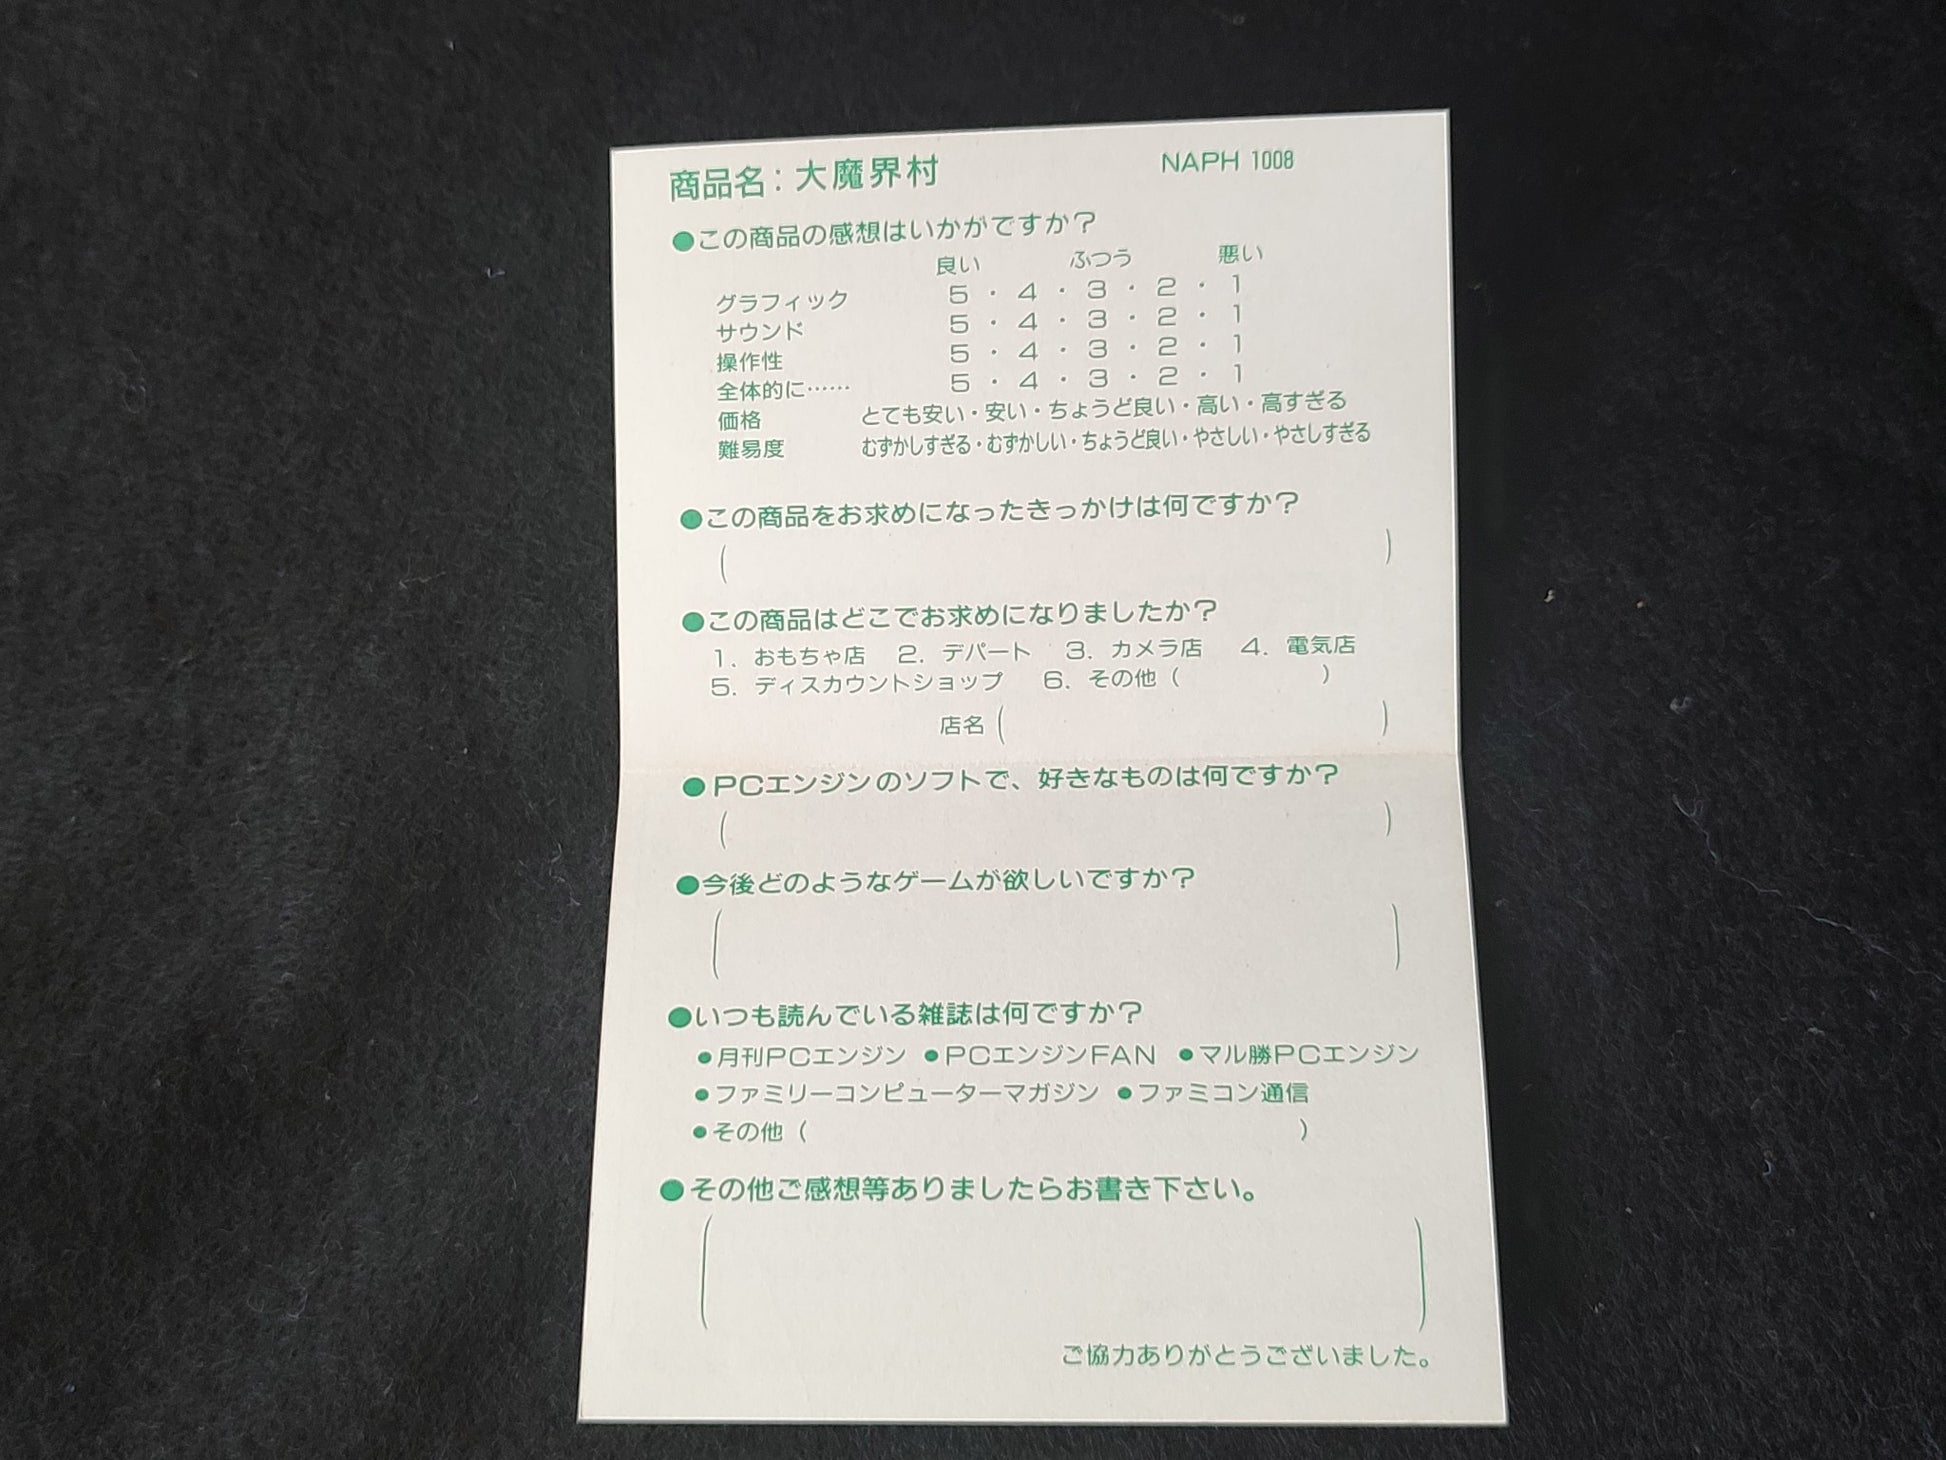 商品名：大魔界村 NAPH 1008
●この商品の感想はいかがですか？
良い ふつう 悪い
グラフィック 5・4・3・2・1
サウンド 5・4・3・2・1
操作性 5・4・3・2・1
全体的に…… 5・4・3・2・1
価格 とても安い・安い・ちょうど良い・高い・高すぎる
難易度 むずかしすぎる・むずかしい・ちょうど良い・やさしい・やさしすぎる
●この商品をお求めになったきっかけは何ですか？
（ ）
●この商品はどこでお求めになりましたか？
1．おもちゃ店 2．デパート 3．カメラ店 4．電気店
5．ディスカウントショップ 6．その他（ ）
店名（ ）
●PCエンジンのソフトで、好きなものは何ですか？
（ ）
●今後どのようなゲームが欲しいですか？
（ ）
●いつも読んでいる雑誌は何ですか？
●月刊PCエンジン ●PCエンジンFAN ●マル勝PCエンジン
●ファミリーコンピューターマガジン ●ファミコン通信
●その他（ ）
●その他ご感想等ありましたらお書き下さい。
（ ）
ご協力ありがとうございました。